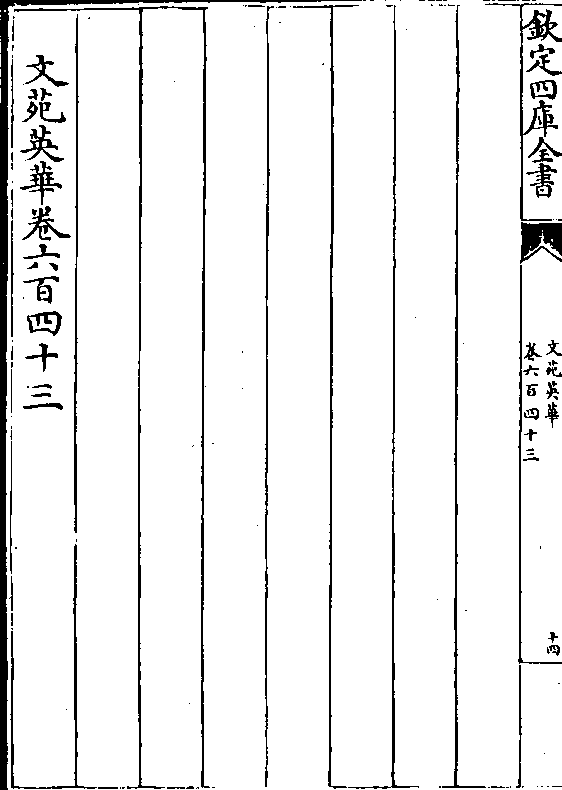 欽定四庫全書
文苑英華
卷六百四十三
十四
文苑英華卷六百四十三